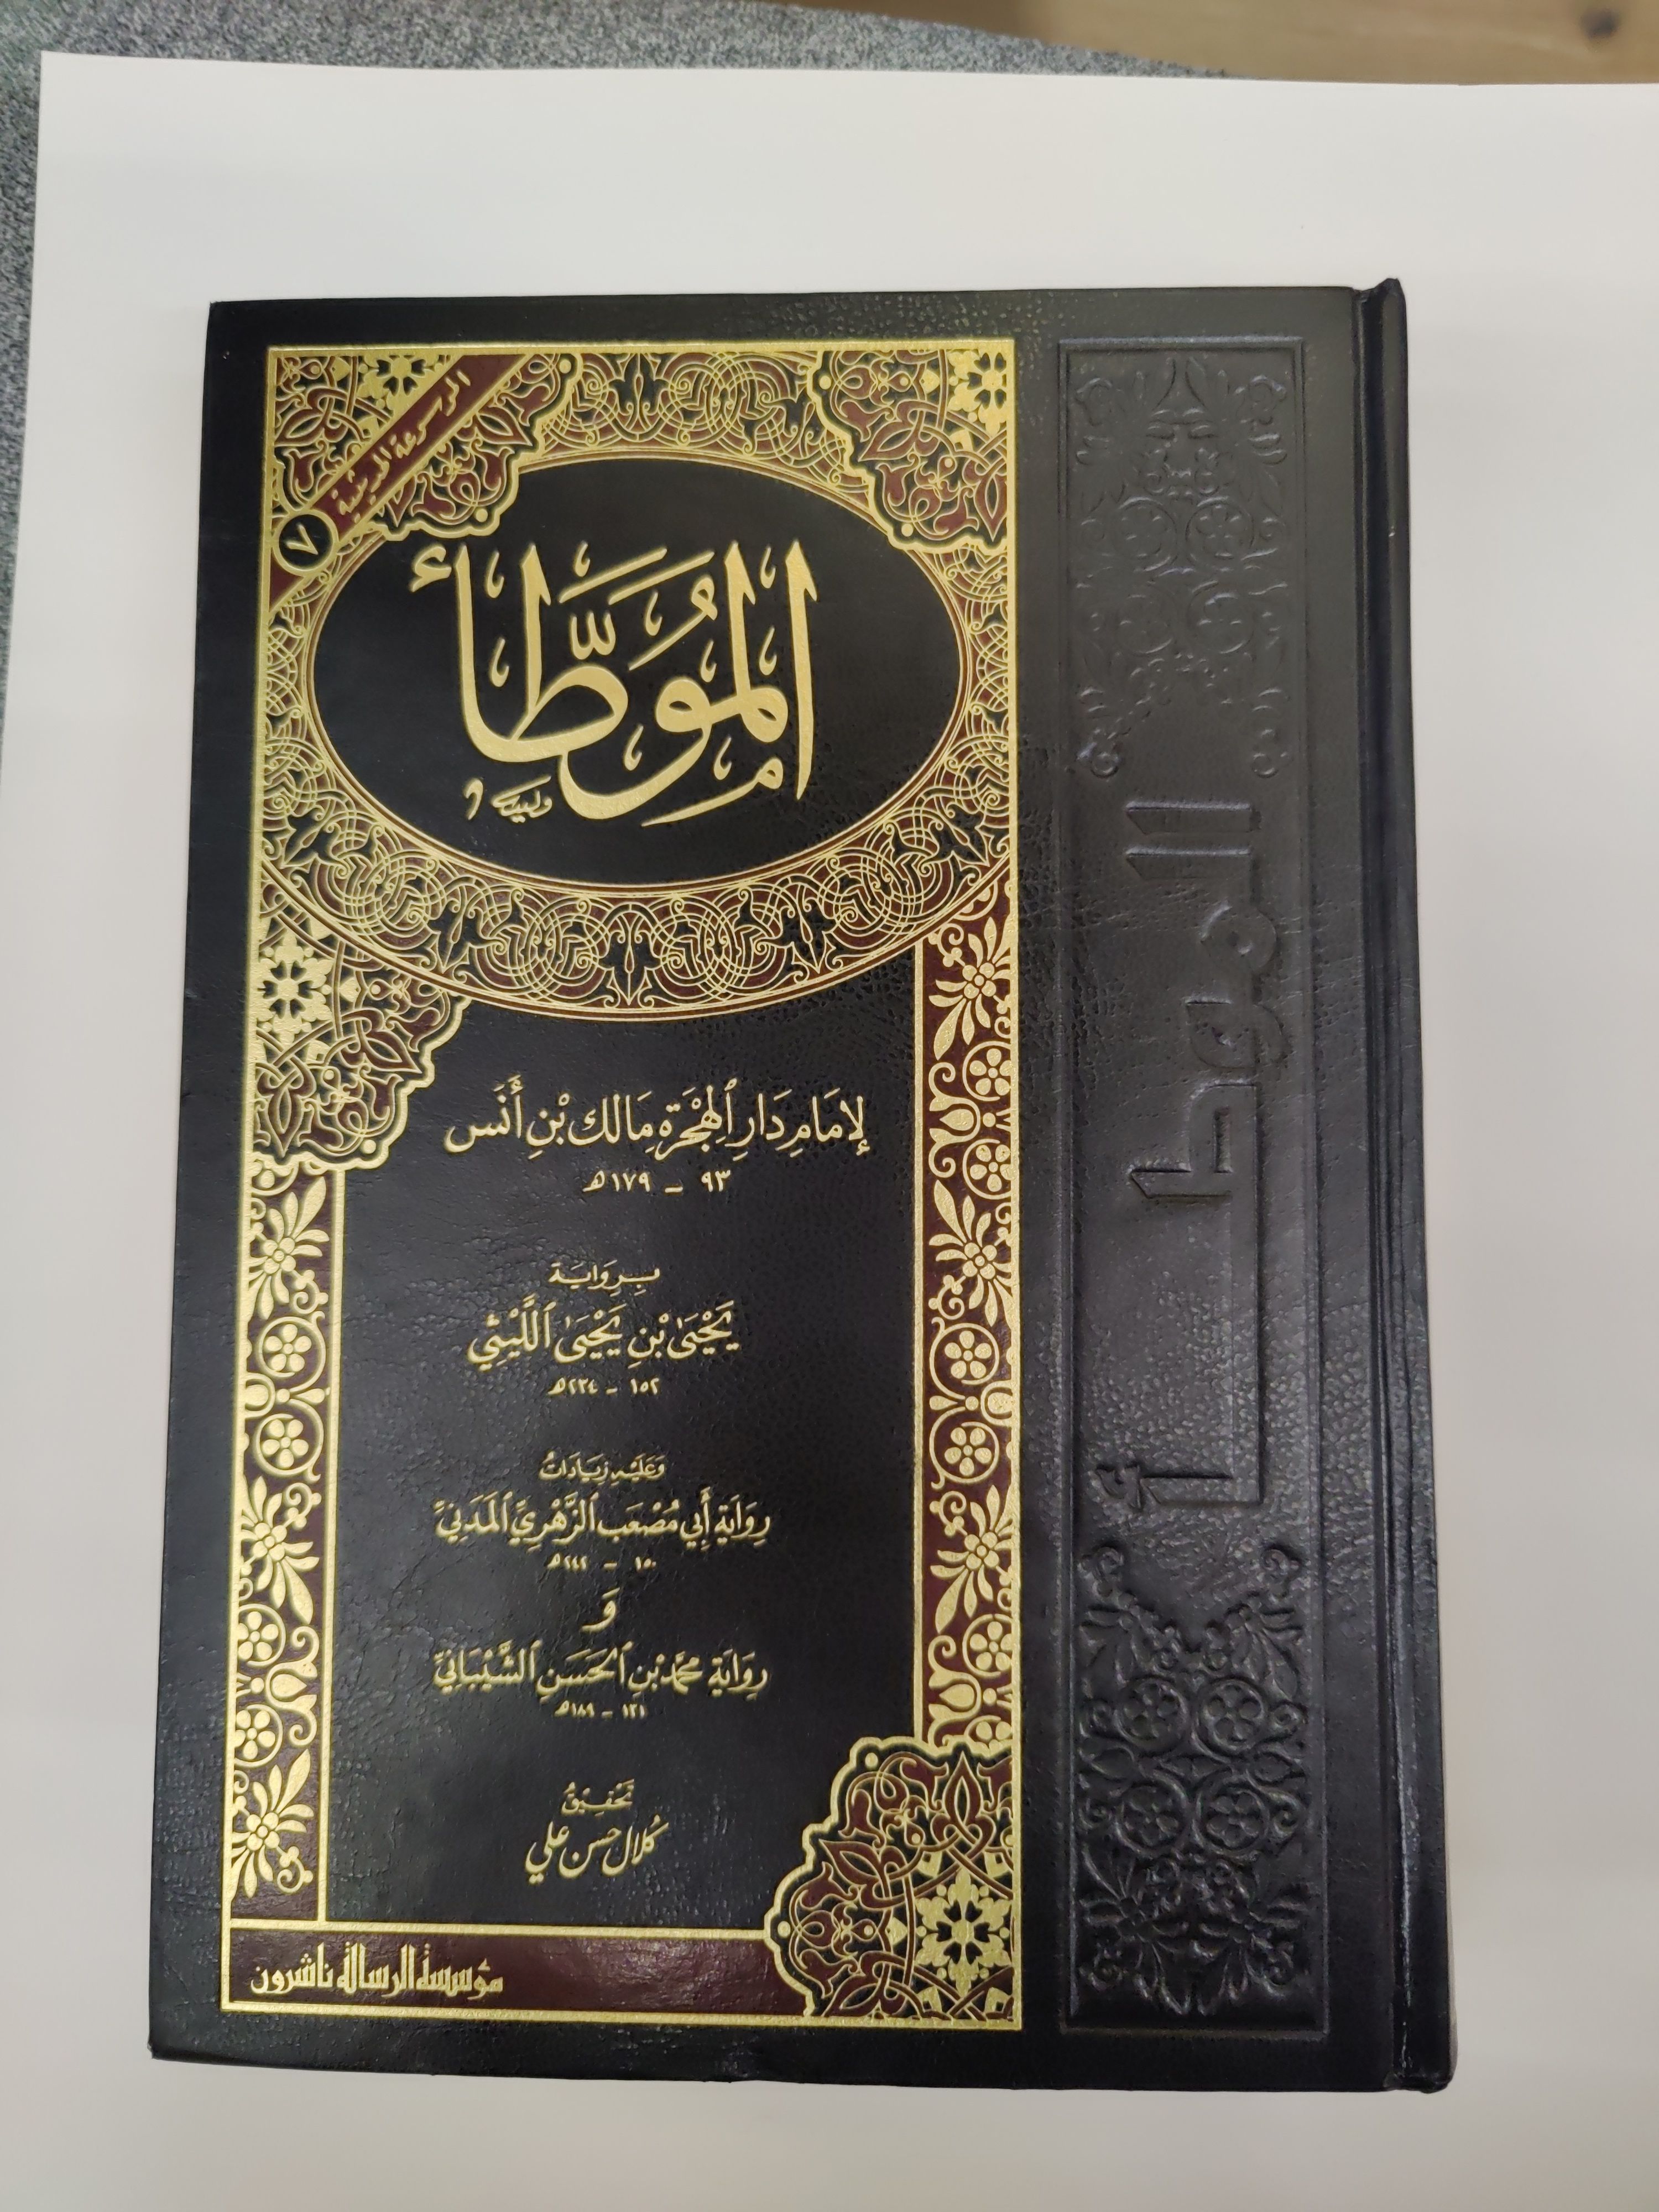 الموسوعة الحديثية
٧
المُوَطَّأ
لإمَامِ دَارِ ٱلهِجْرَةِ مَالك بْنِ أَنَس
٩٣ - ١٧٩هـ
بِرِوَايَة
يَحْيَىٰ بْنِ يَحْيَىٰ ٱللَّيْثِي
١٥٢ - ٢٣٤هـ
وَعَلَيهِ زِيَادَاتُ
رِوَايَةِ أَبِي مُصْعَبٍ ٱلزُّهْرِيِّ ٱلمَدَنِيِّ
١٥٠ - ٢٤٢هـ
وَ
رِوَايَةِ مُحمَّد بْنِ ٱلحَسَنِ ٱلشَّيْبَانِيِّ
١٣١ - ١٨٩هـ
تَحْقِيْقُ
كُلال حسن علي
مؤسسة الرسالة ناشرون
الموطأ